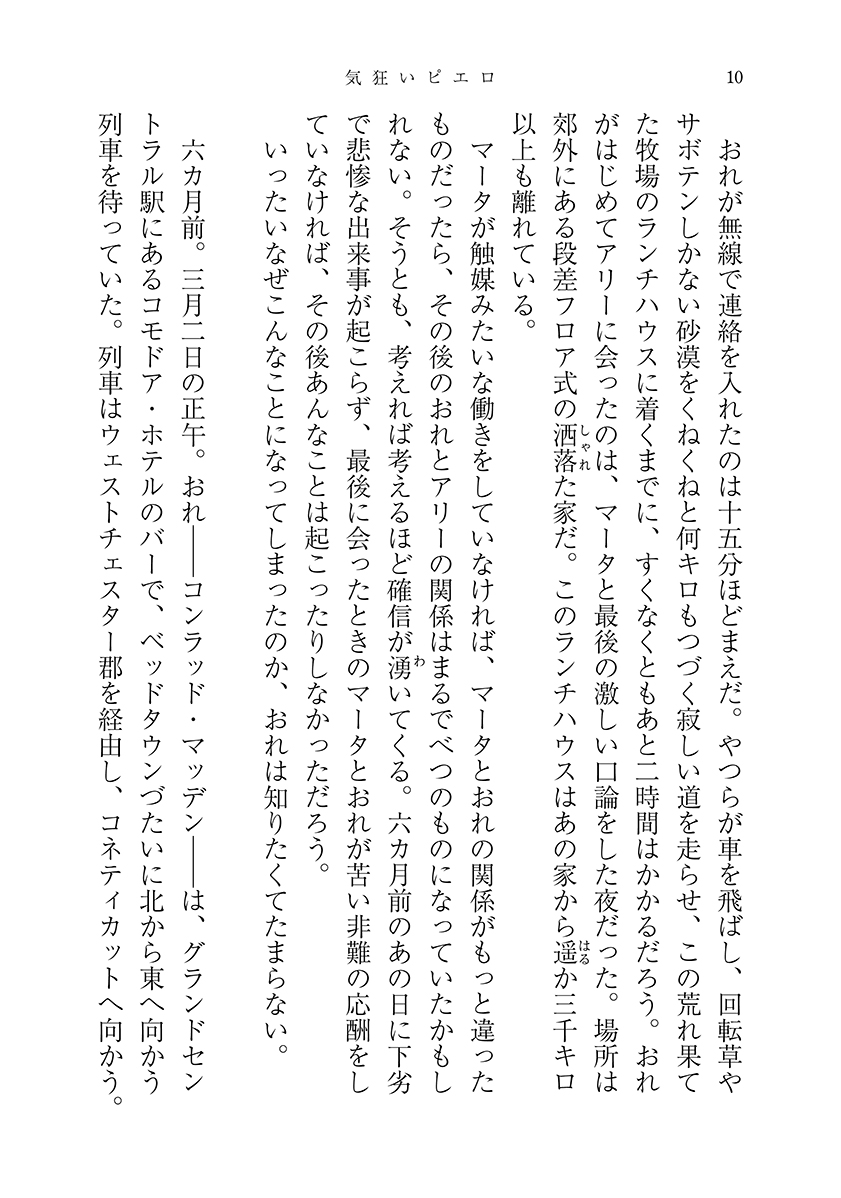 気狂いピエロ
10
おれが無線で連絡を入れたのは十五分ほどまえだ。やつらが車を飛ばし、回転草や
サボテンしかない砂漠をくねくねと何キロもつづく寂しい道を走らせ、この荒れ果て
た牧場のランチハウスに着くまでに、すくなくともあと二時間はかかるだろう。おれ
がはじめてアリーに会ったのは、マータと最後の激しい口論をした夜だった。場所は
郊外にある段差フロア式の洒落た家だ。このランチハウスはあの家から遥か三千キロ
以上も離れている。
マータが触媒みたいな働きをしていなければ、マータとおれの関係がもっと違った
ものだったら、その後のおれとアリーの関係はまるでべつのものになっていたかもし
れない。そうとも、考えれば考えるほど確信が湧いてくる。六カ月前のあの日に下劣
で悲惨な出来事が起こらず、最後に会ったときのマータとおれが苦い非難の応酬をし
ていなければ、その後あんなことは起こったりしなかっただろう。
いったいなぜこんなことになってしまったのか、おれは知りたくてたまらない。
六カ月前。三月二日の正午。おれ――コンラッド・マッデン――は、グランドセン
トラル駅にあるコモドア・ホテルのバーで、ベッドタウンづたいに北から東へ向かう
列車を待っていた。列車はウェストチェスター郡を経由し、コネティカットへ向かう。